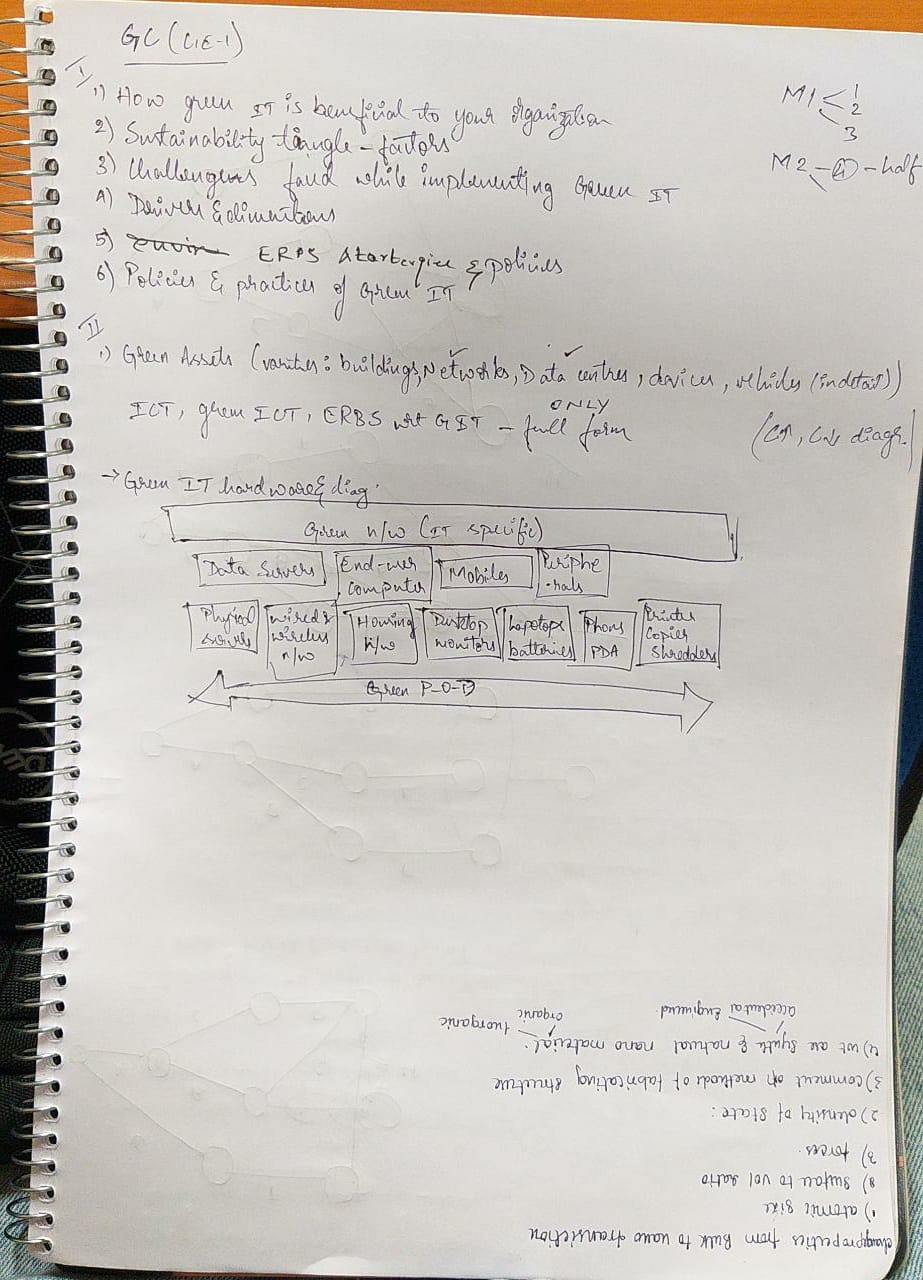 GC (CIE-1)
I
1) How green IT is beneficial to your organization
2) Sustainability triangle - factors
3) Challenges faced while implementing Green IT
4) Drivers & dimentions
5) ERBS & policies
6) Policies & practices of Green IT
M1 < 1
2
3
M2 - 4 - half
II
1) Green Assets (varities: buildings, Networks, Data centres, devices, vehicles (in detail))
ICT, green ICT, ERBS wrt GIT - full form
ONLY
→ Green IT hardware & diag.
Green n/w (IT specific)
Data Servers
End-user computer
Mobiles
Periphe-rals
Physical servers
wired & wireless n/w
Housing h/w
Desktop monitors
Lapotops batteries
Phons PDA
Printer Copier Shredders
Green P-O-D
properties from Bulk to nano transiction
1) atomic size
2) surface to vol ratio
3) forces.
2) density of State:
3) comment on methods of fabricating structure
4) wt are Synth & natural nano material:
accidental Engineered.
organic Inorganic